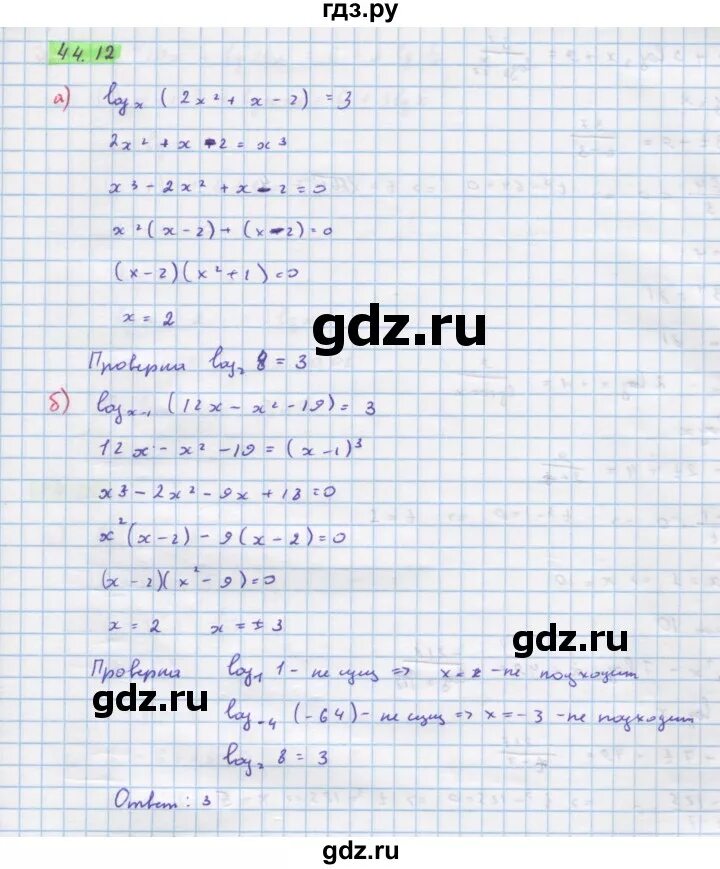 гдз.ру
44.12
а) log_x (2x² + x - 2) = 3
2x² + x - 2 = x³
x³ - 2x² + x - 2 = 0
x²(x - 2) + (x - 2) = 0
(x - 2)(x² + 1) = 0
x = 2
gdz.ru
Проверка log₂ 8 = 3
б) log_{x-1} (12x - x² - 19) = 3
12x - x² - 19 = (x - 1)³
x³ - 2x² - 9x + 18 = 0
x²(x - 2) - 9(x - 2) = 0
(x - 2)(x² - 9) = 0
x = 2 x = ± 3
gdz.ru
Проверка log₁ 1 - не сущ => x = 2 - не подходит
gdz.ru
log₋₄ (-64) - не сущ => x = -3 - не подходит
log₂ 8 = 3
Ответ: 3
gdz.ru